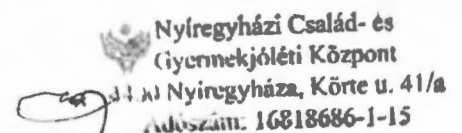 Nyíregyházi Család- és
Gyermekjóléti Központ
Nyíregyháza, Körte u. 41/a
Adószám: 16818686-1-15